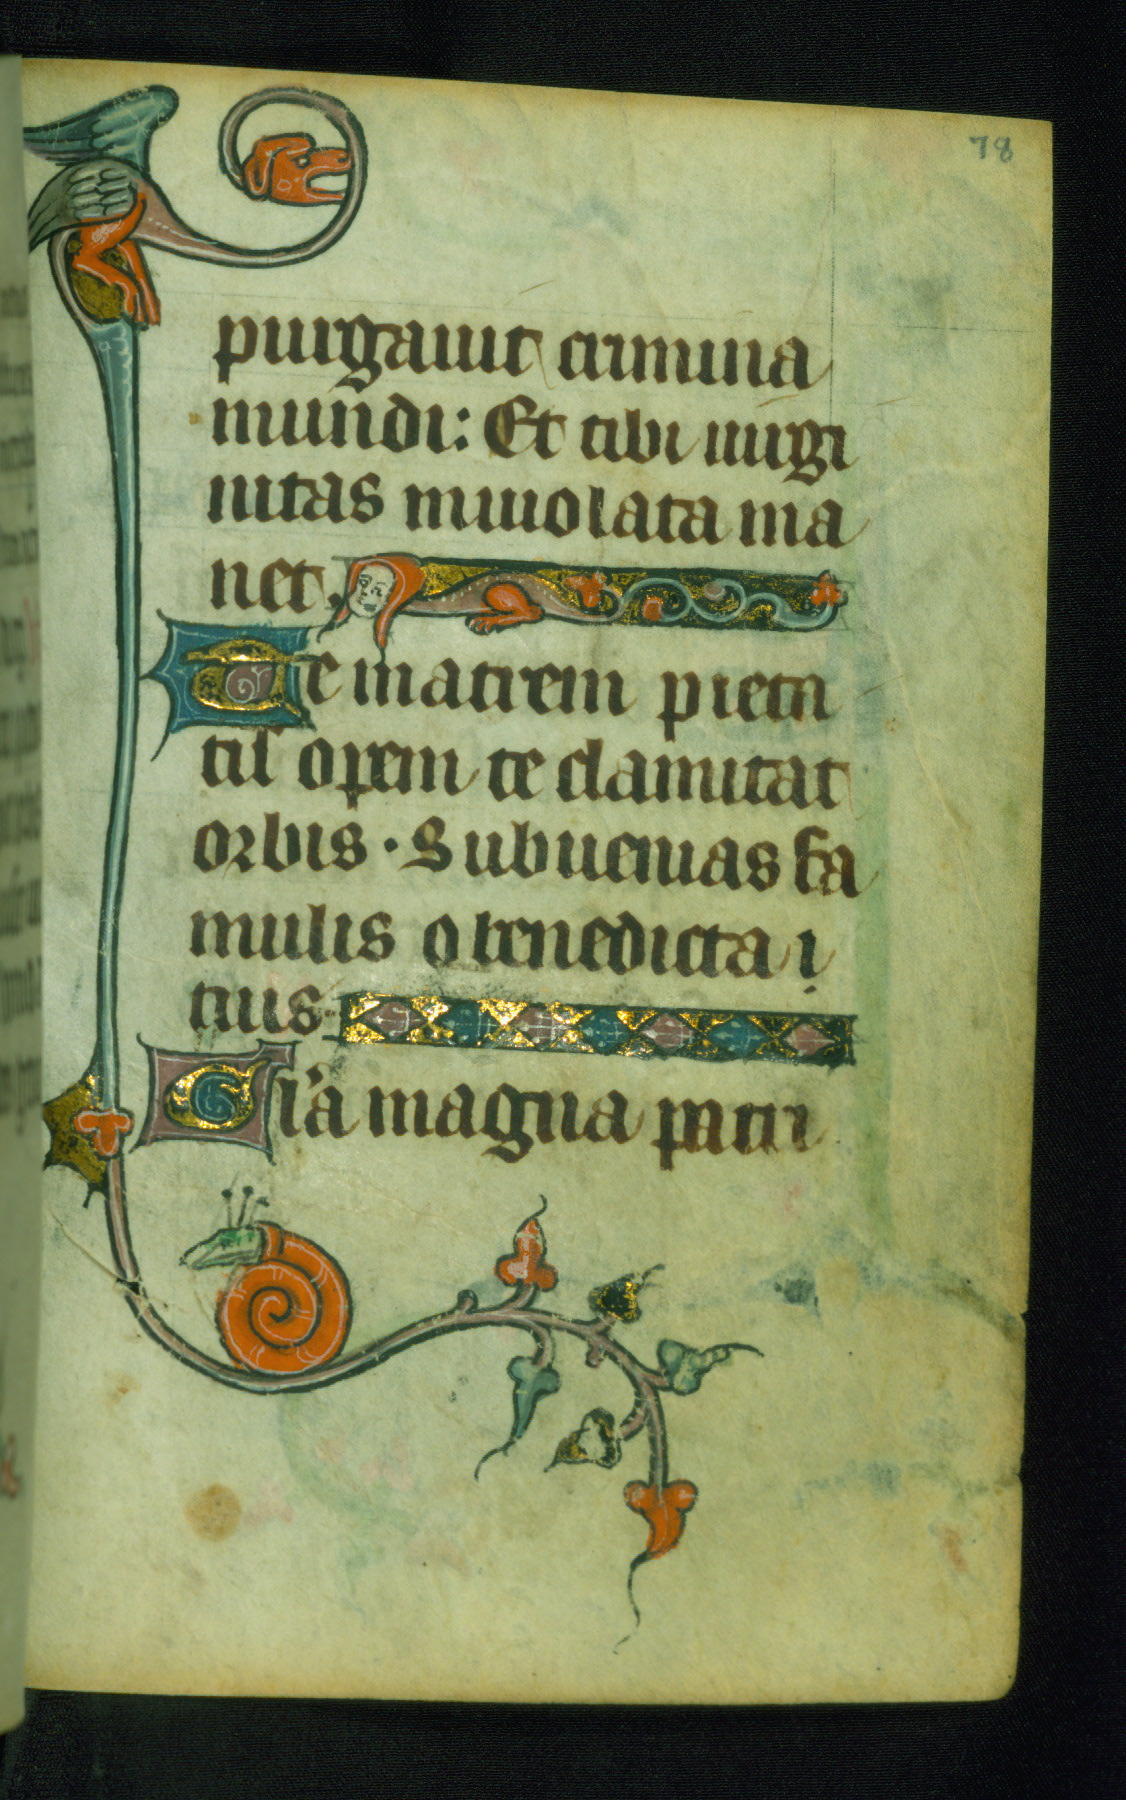 78
purgauit crimina
mundi: Et tibi uirgi
nitas inuiolata ma
net.
Te matrem pieta
tis opem te clamitat
orbis · Subuenias fa
mulis o benedicta i
tuis
Gl'a magna patri